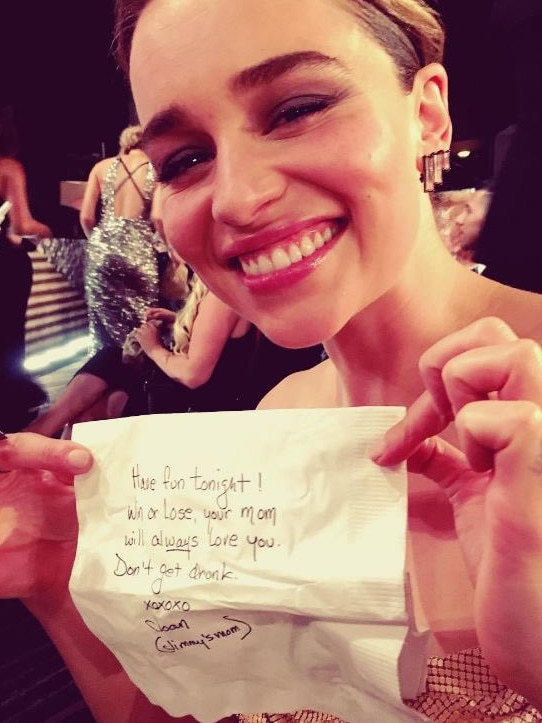 Have fun tonight!
Win or Lose, your mom
will always Love you.
Don't get drunk.
xoxoxo
Joan
(Jimmy's mom)